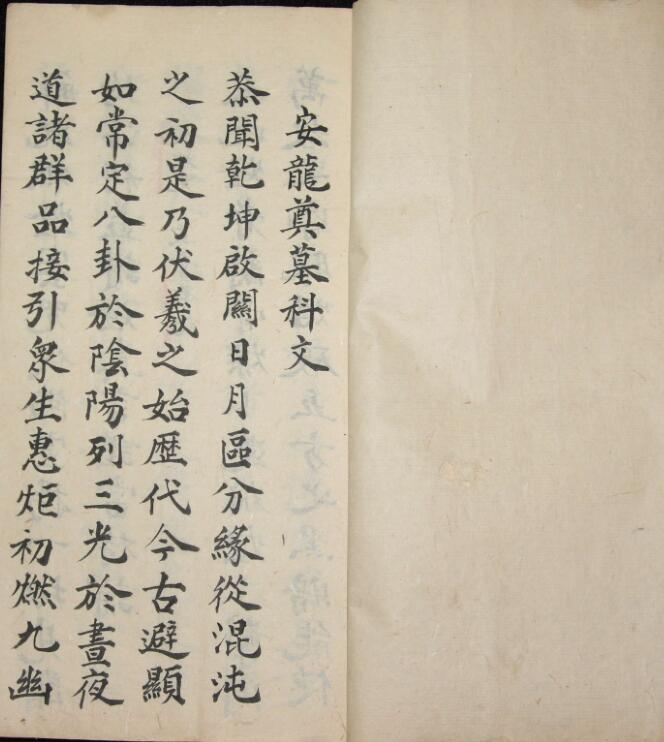 安龍奠墓科文
恭聞乾坤啟闢日月區分緣從混沌
之初是乃伏羲之始歷代今古避顯
如常定八卦於陰陽列三光於晝夜
道諸群品接引眾生惠炬初燃九幽